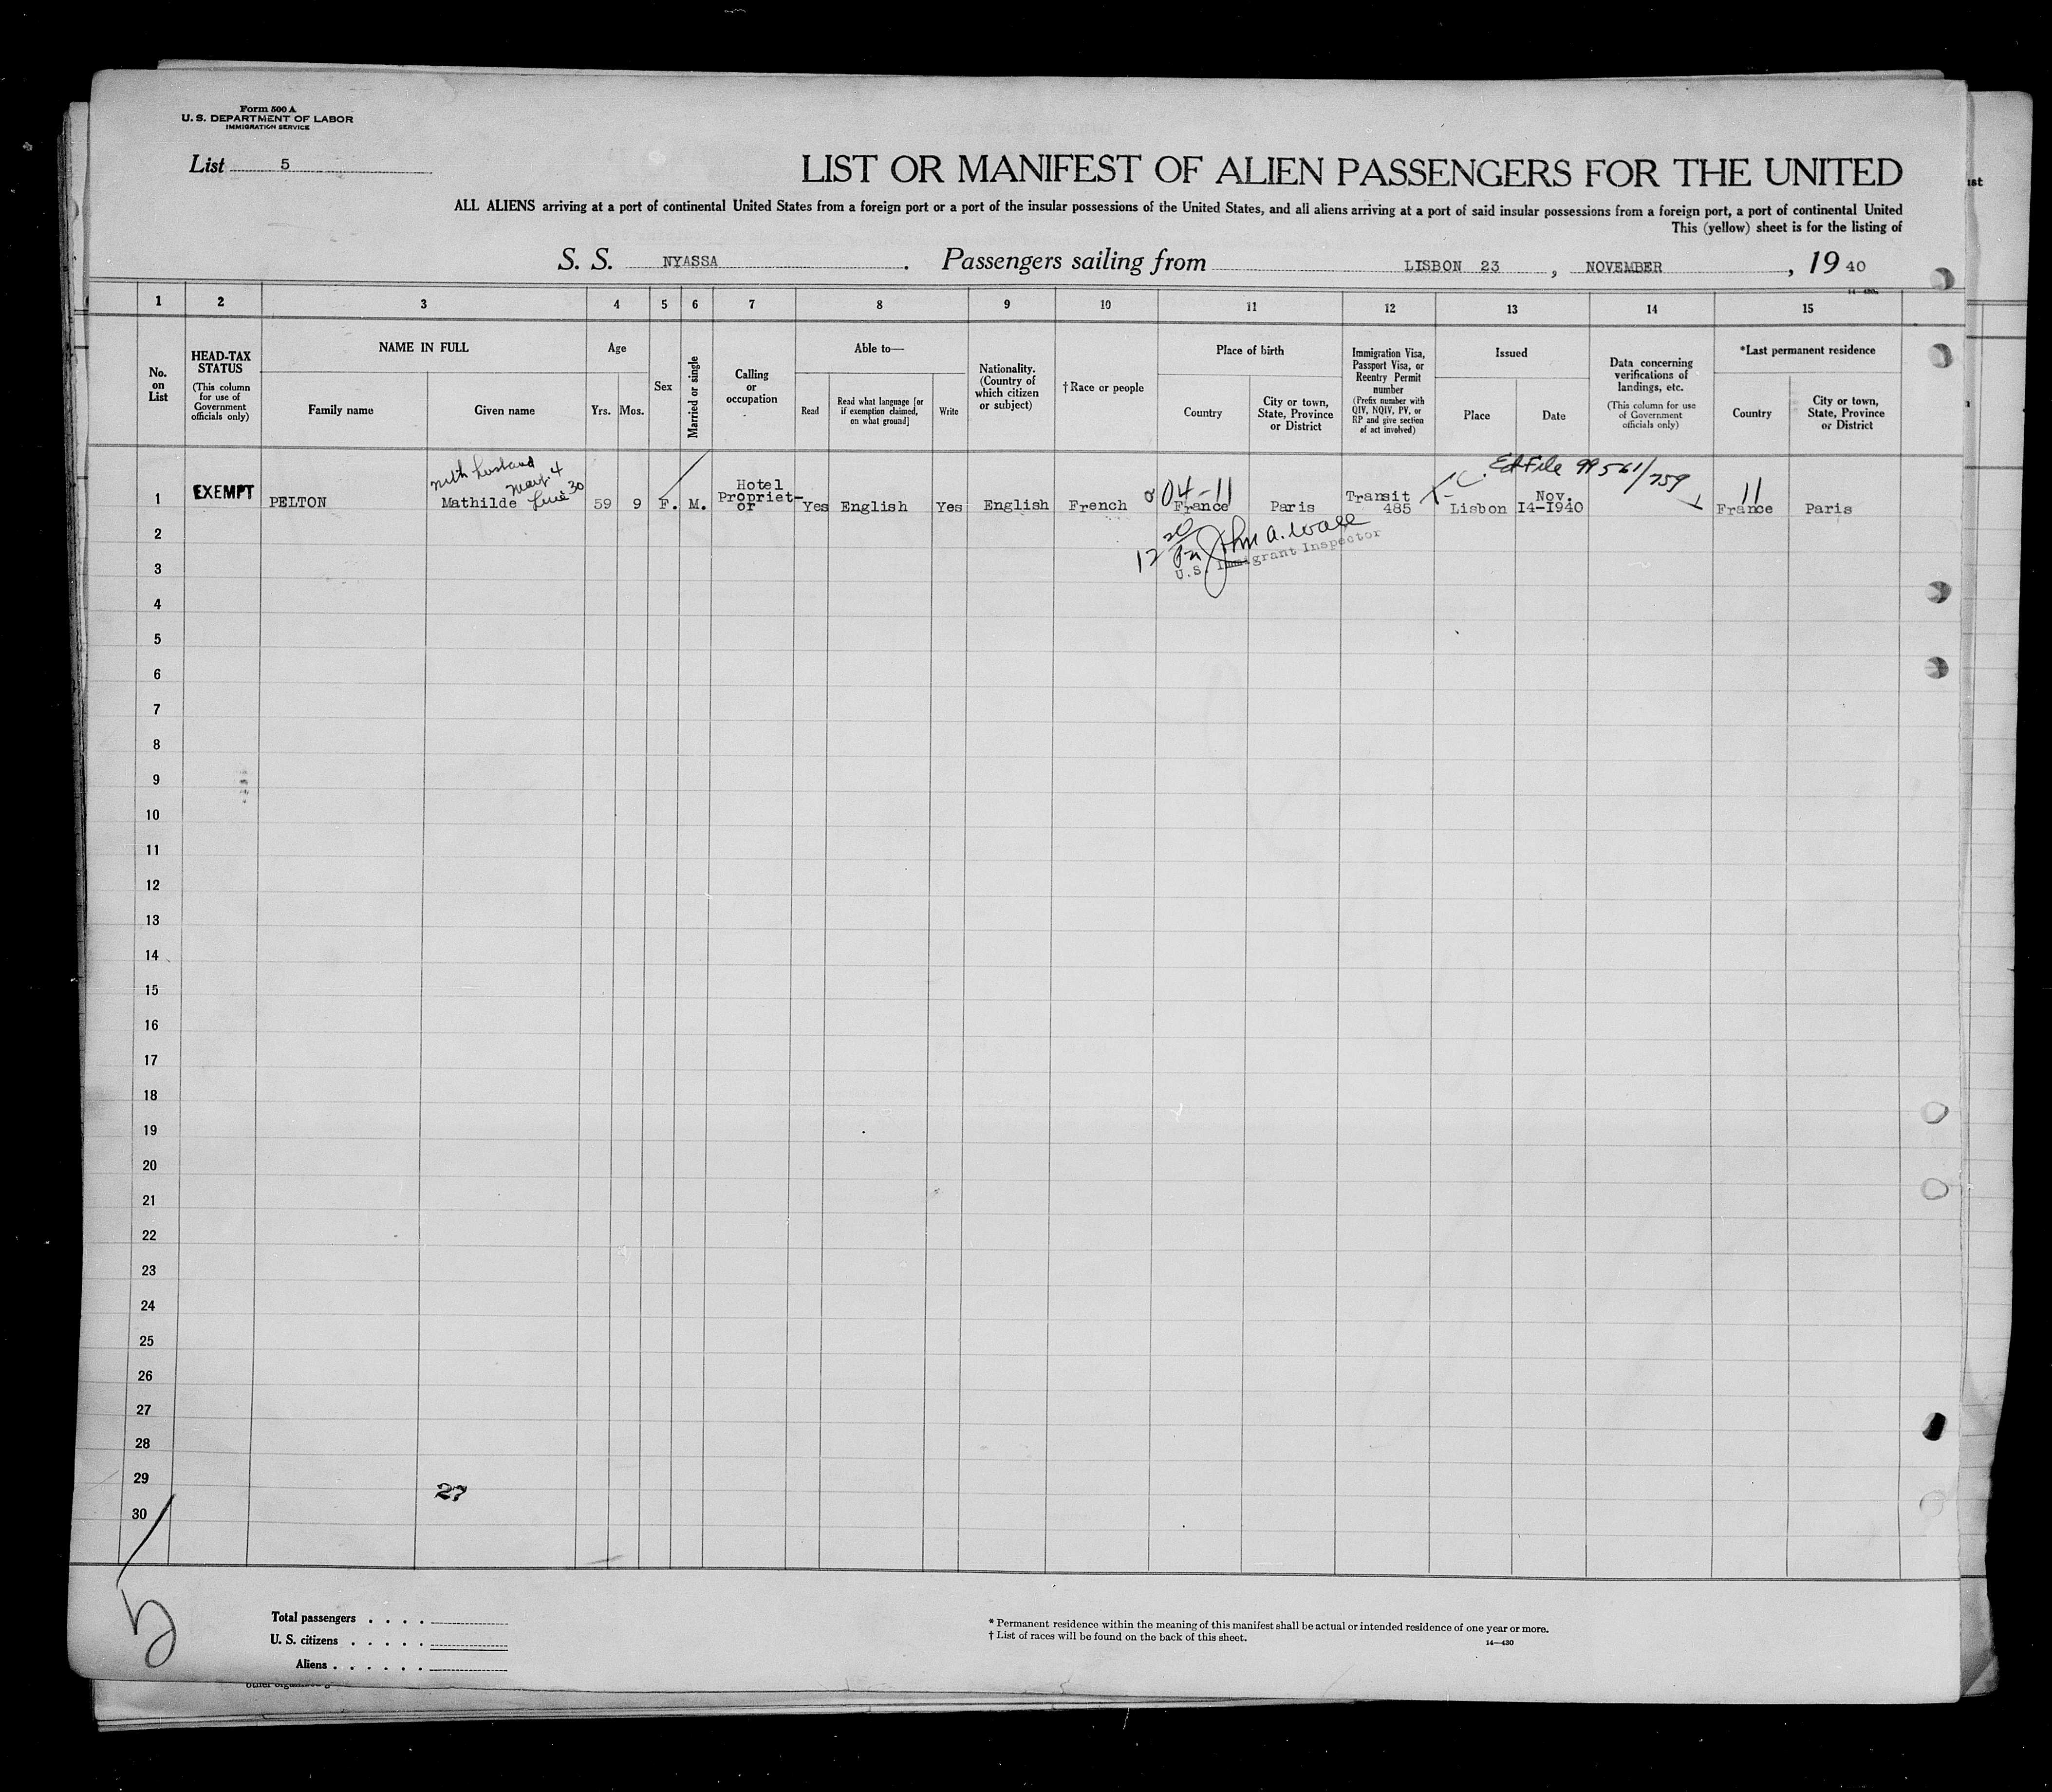 Form 500 A
U. S. DEPARTMENT OF LABOR
IMMIGRATION SERVICE
List 5
LIST OR MANIFEST OF ALIEN PASSENGERS FOR THE UNITED
ALL ALIENS arriving at a port of continental United States from a foreign port or a port of the insular possessions of the United States, and all aliens arriving at a port of said insular possessions from a foreign port, a port of continental United
This (yellow) sheet is for the listing of
S. S. NYASSA. Passengers sailing from LISBON 23, NOVEMBER, 19 40
1 2 3 4 5 6 7 8 9 10 11 12 13 14 15
No. on List
HEAD-TAX STATUS
(This column for use of Government officials only)
NAME IN FULL
Family name
Given name
Age
Yrs.
Mos.
Sex
Married or single
Calling or occupation
Able to—
Read
Read what language [or if exemption claimed, on what ground]
Write
Nationality. (Country of which citizen or subject)
†Race or people
Place of birth
Country
City or town, State, Province or District
Immigration Visa, Passport Visa, or Reentry Permit number
(Prefix number with QIV, NQIV, PV, or RP and give section of act involved)
Issued
Place
Date
Data concerning verifications of landings, etc.
(This column for use of Government officials only)
*Last permanent residence
Country
City or town, State, Province or District
with husband
Ed File 99561/759
04-11
11
1 EXEMPT PELTON Mathilde 59 9 F. M. Hotel Propriet-or Yes English Yes English French France Paris Transit 485 Lisbon Nov. 14-1940 France Paris
U.S. Immigrant Inspector
2
3
4
5
6
7
8
9
10
11
12
13
14
15
16
17
18
19
20
21
22
23
24
25
26
27
28
29
27
30
5
Total passengers . . . .
U. S. citizens . . . . .
Aliens . . . . . .
* Permanent residence within the meaning of this manifest shall be actual or intended residence of one year or more.
† List of races will be found on the back of this sheet.
14—430